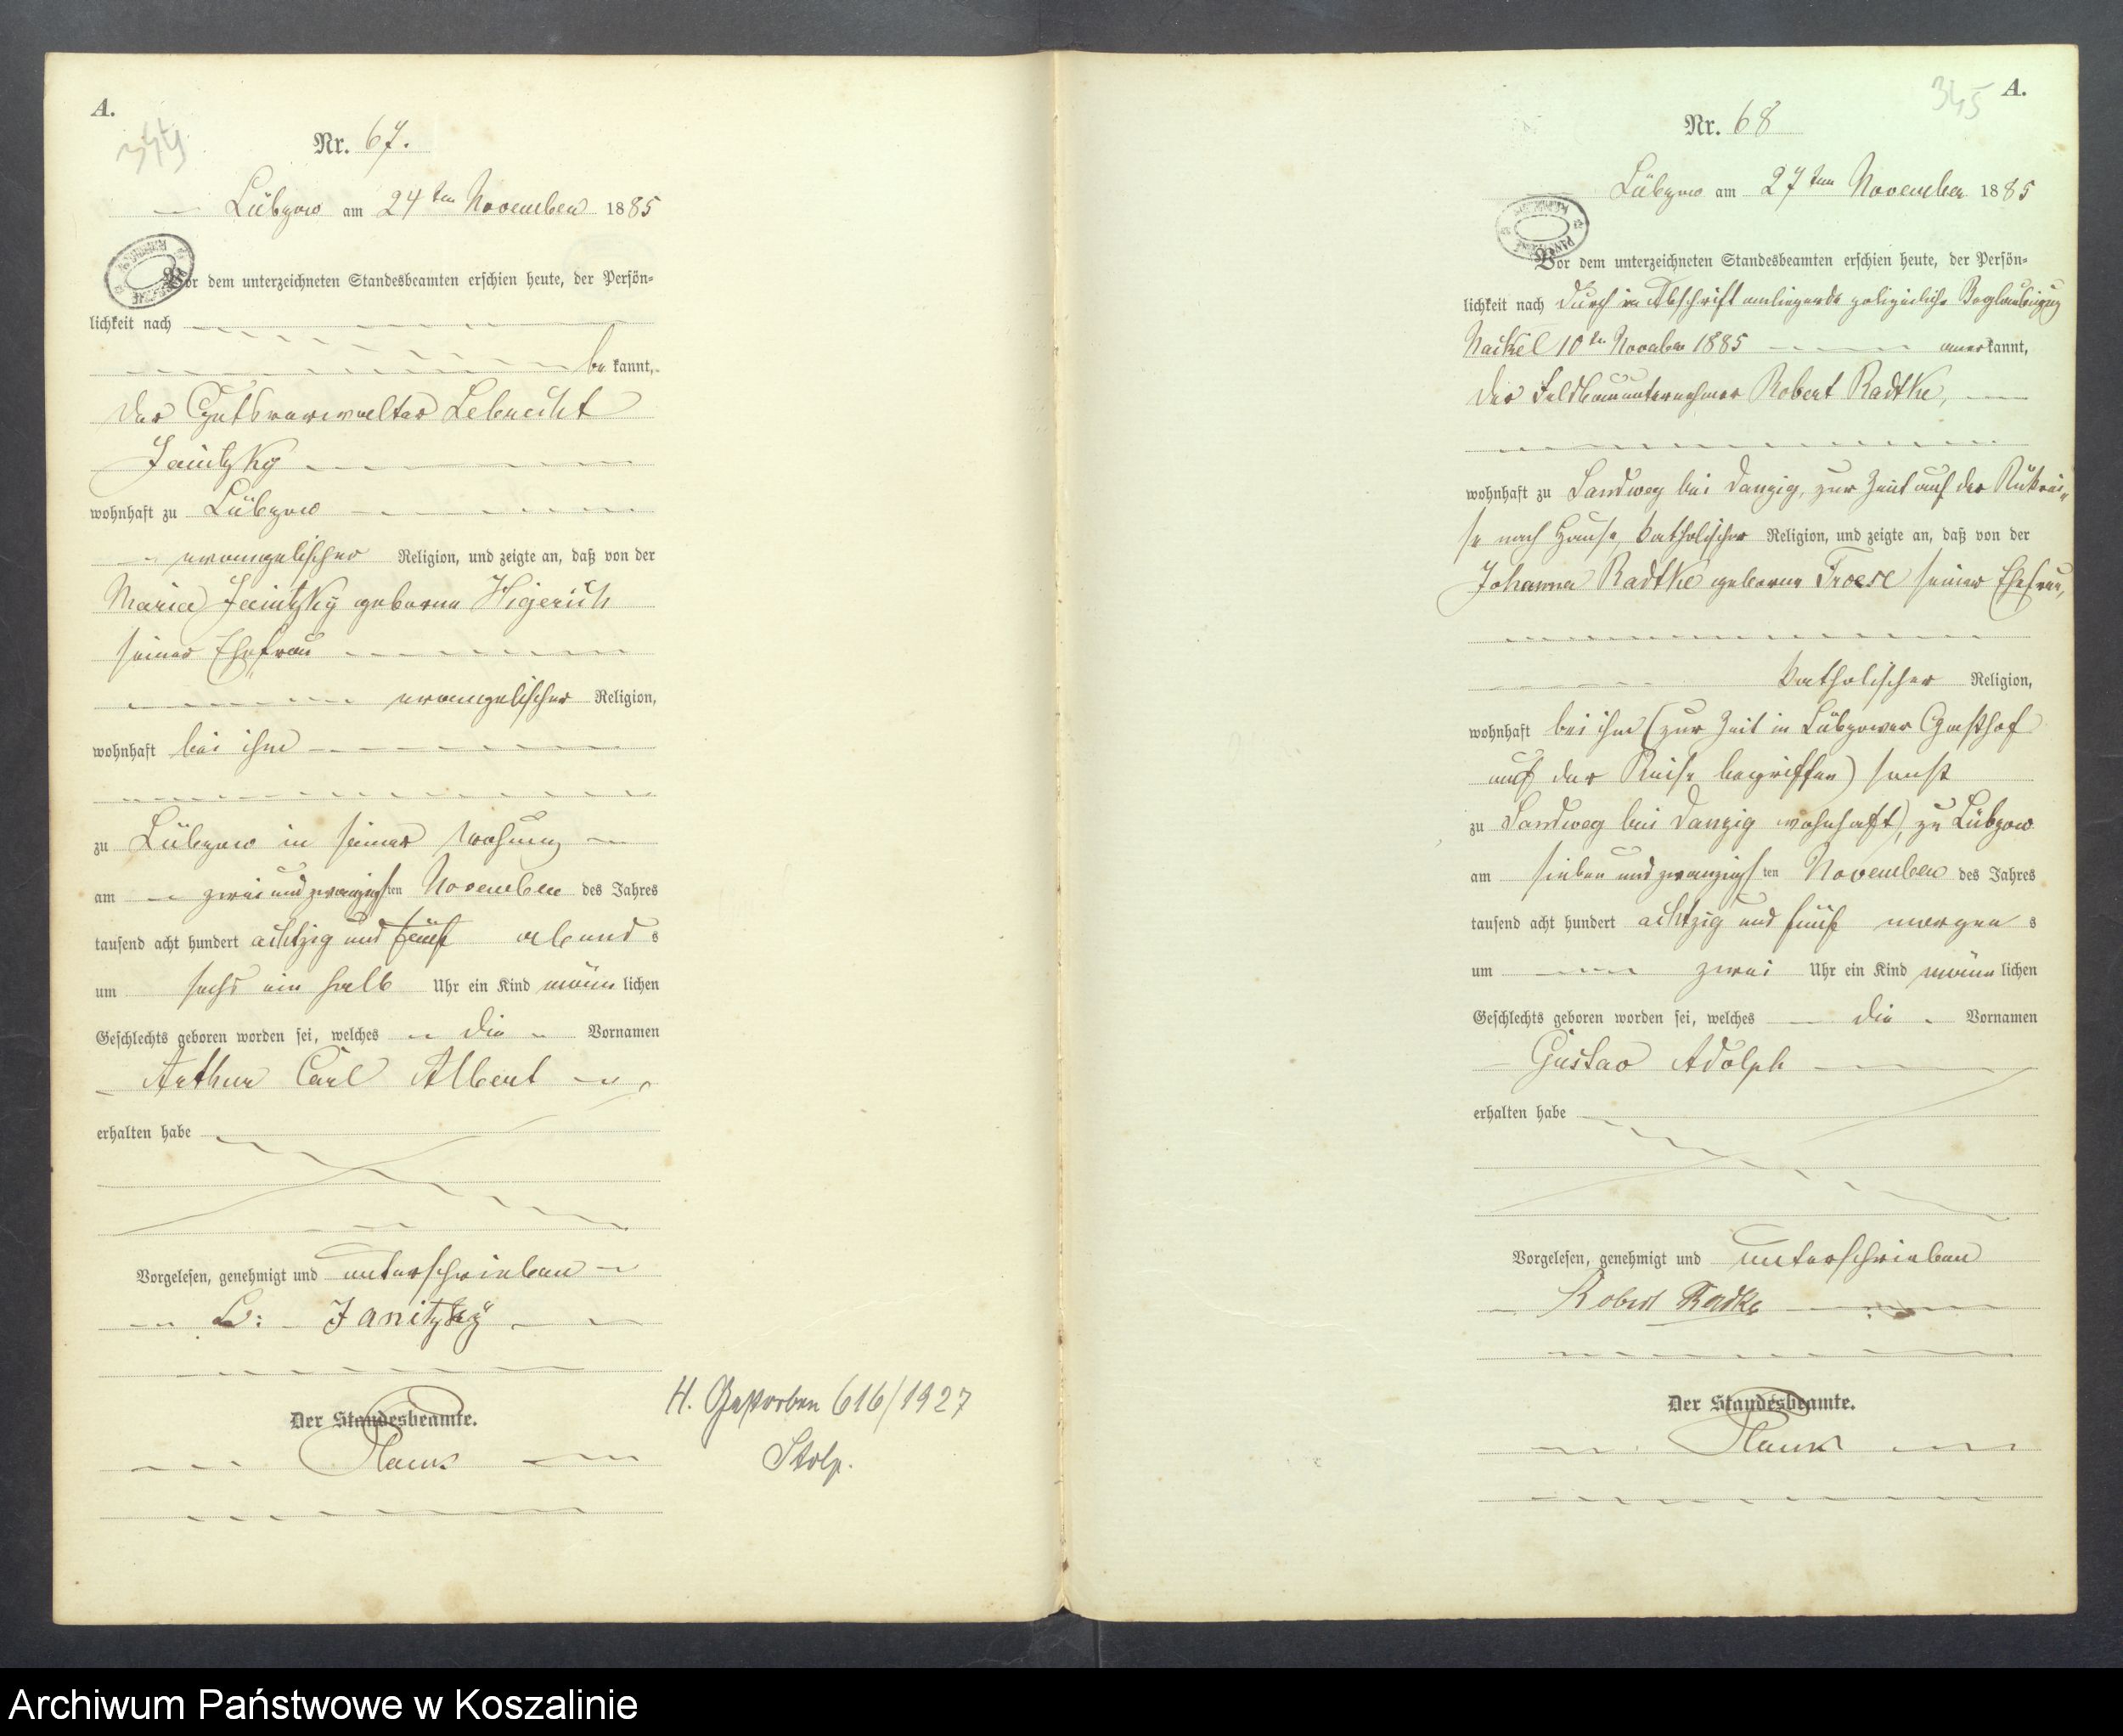 A.
344
Nr. 67.
Lübzow am 24ten November 1885
Vor dem unterzeichneten Standesbeamten erschien heute, der Persön-
lichkeit nach
be kannt,
der Gutsverwalter Lebrecht
Janitzky
wohnhaft zu Lübzow
evangelischer Religion, und zeigte an, daß von der
Maria Janitzky geborne Higerich
seiner Ehefrau
evangelischer Religion,
wohnhaft bei ihm
zu Lübzow in seiner Wohnung
am zwei und zwanzigsten November des Jahres
tausend acht hundert achtzig und fünf abends
um sechs ein halb Uhr ein Kind männlichen
Geschlechts geboren worden sei, welches die Vornamen
Arthur Carl Albert
erhalten habe
Vorgelesen, genehmigt und unterschrieben
L: Janitzky
Der Standesbeamte.
H. Gestorben 616/1927
Stolp.
345
A.
Nr. 68
Lübzow am 27ten November 1885
Vor dem unterzeichneten Standesbeamten erschien heute, der Persön-
lichkeit nach durch in Abschrift anliegende polizeiliche Beglaubigung
Nackel 10ten November 1885 anerkannt,
der Feldbauunternehmer Robert Radtke,
wohnhaft zu Sandweg bei Danzig, zur Zeit auf der Rükrei-
se nach Hause, katholischer Religion, und zeigte an, daß von der
Johanna Radtke geborne Froese seiner Ehefrau,
katholischer Religion,
wohnhaft bei ihm (zur Zeit in Lübzower Gasthof
auf der Reise begriffen) sonst
zu Sandweg bei Danzig wohnhaft), zu Lübzow
am sieben und zwanzigsten November des Jahres
tausend acht hundert achtzig und fünf morgens
um zwei Uhr ein Kind männlichen
Geschlechts geboren worden sei, welches die Vornamen
Gustav Adolph
erhalten habe
Vorgelesen, genehmigt und unterschrieben
Robert Radke
Der Standesbeamte.
Archiwum Państwowe w Koszalinie